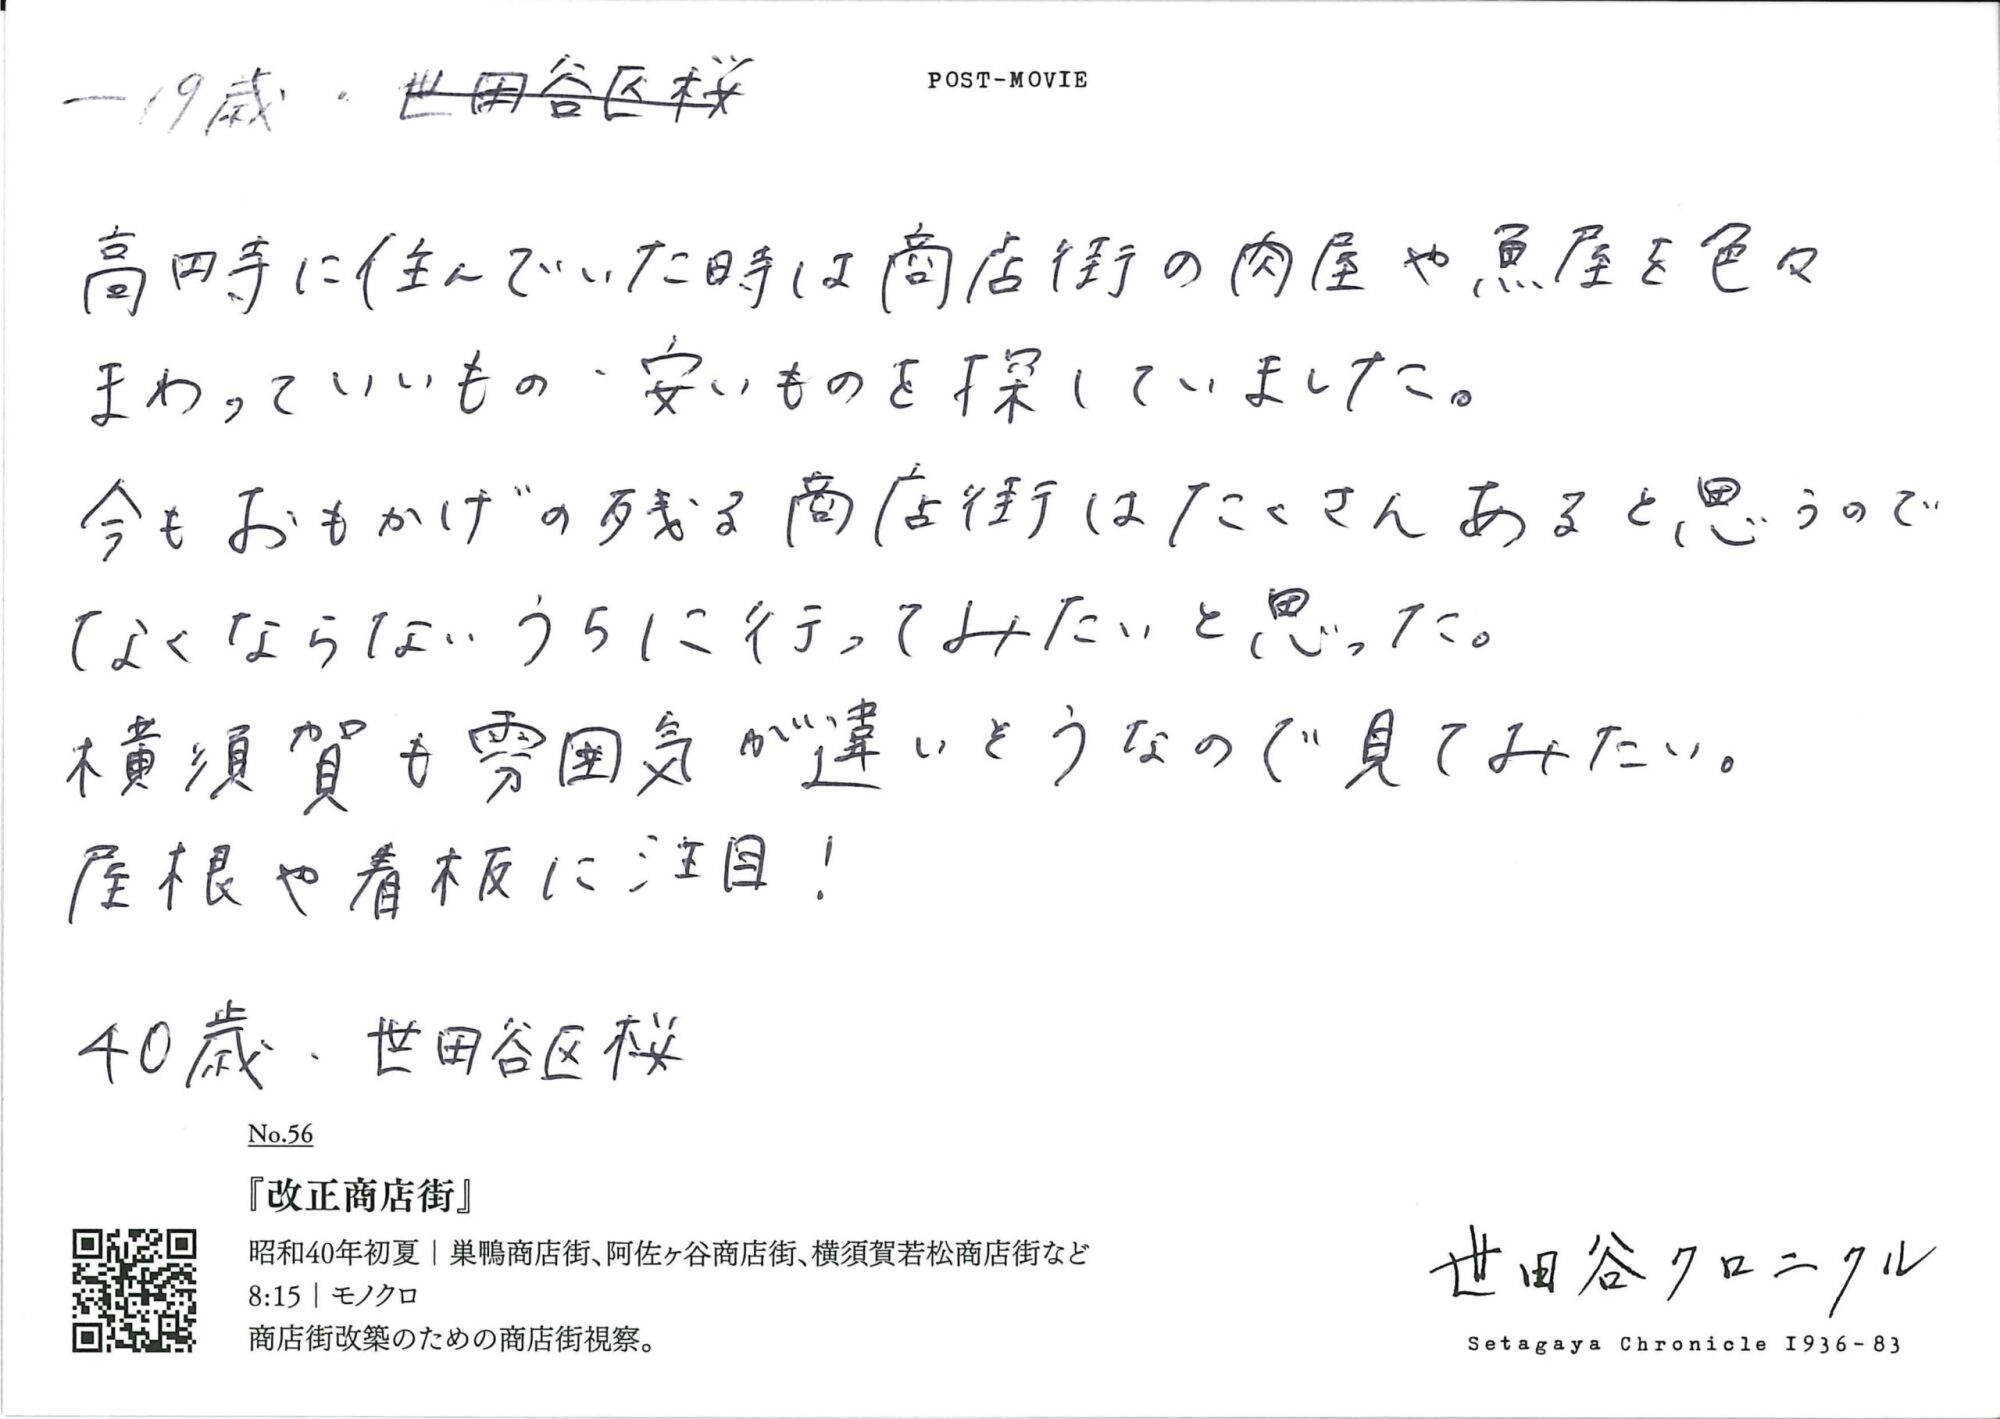 一19歳・世田谷区桜
POST-MOVIE
高円寺に住んでいた時は商店街の肉屋や魚屋を色々
まわっていいもの・安いものを探していました。
今もおもかげの残る商店街はたくさんあると思うので
なくならないうちに行ってみたいと思った。
横須賀も雰囲気が違いそうなので見てみたい。
屋根や看板に注目!
40歳・世田谷区桜
No.56
『改正商店街』
昭和40年初夏｜巣鴨商店街、阿佐ヶ谷商店街、横須賀若松商店街など
8:15｜モノクロ
商店街改築のための商店街視察。
世田谷クロニクル
Setagaya Chronicle 1936-83